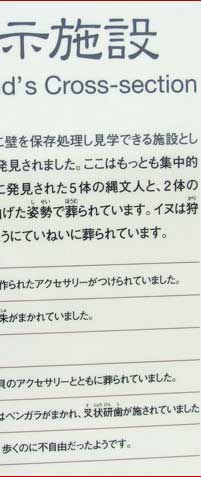 示施設
d's Cross-section
に壁を保存処理し見学できる施設とし
発見されました。ここはもっとも集中的
に発見された5体の縄文人と、2体の
げた姿勢で葬られています。イヌは狩
うにていねいに葬られています。
作られたアクセサリーがつけられていました。
朱がまかれていました。
貝のアクセサリーとともに葬られていました。
はベンガラがまかれ、叉状研歯が施されていました
歩くのに不自由だったようです。